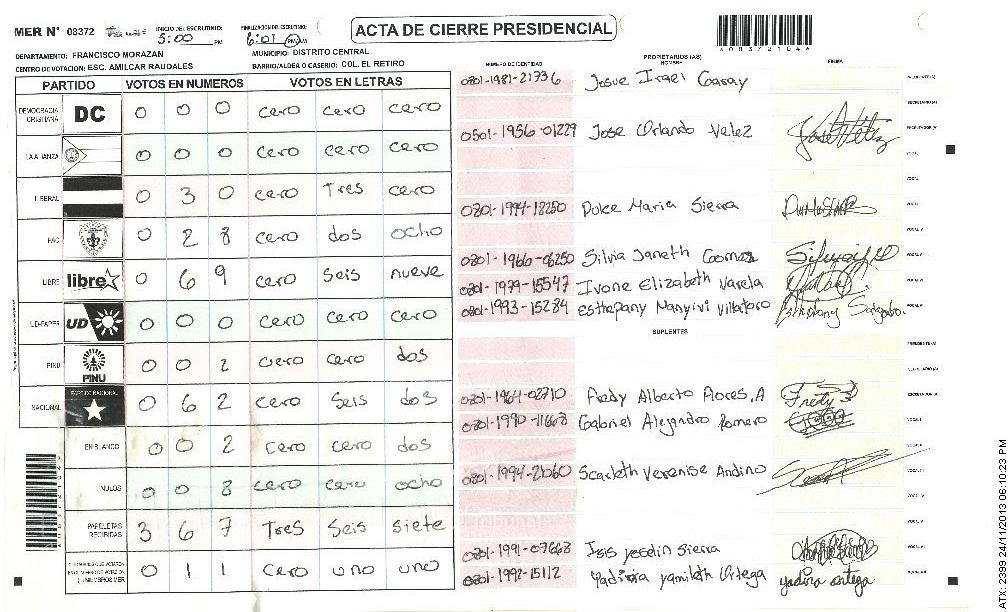 MER N° 08372 INICIO DEL ESCRUTINIO: 5:00 PM FINALIZACION DEL ESCRUTINIO: 6:01 PM ACTA DE CIERRE PRESIDENCIAL
DEPARTAMENTO: FRANCISCO MORAZAN MUNICIPIO: DISTRITO CENTRAL
CENTRO DE VOTACION: ESC. AMILCAR RAUDALES BARRIO/ALDEA O CASERIO: COL. EL RETIRO
PARTIDO VOTOS EN NUMEROS VOTOS EN LETRAS
DEMOCRACIA CRISTIANA DC 0 0 0 cero cero cero
LA ALIANZA 0 0 0 cero cero cero
LIBERAL 0 3 0 cero Tres cero
PAC 0 2 8 cero dos ocho
LIBRE libre 0 6 9 cero seis nueve
UD-FAPER UD 0 0 0 cero cero cero
PINU PINU 0 0 2 cero cero dos
NACIONAL PARTIDO NACIONAL 0 6 2 cero seis dos
EN BLANCO 0 0 2 cero cero dos
NULOS 0 0 8 cero cero ocho
PAPELETAS RECIBIDAS 3 6 7 Tres seis siete
0 1 1 cero uno uno
NUMERO DE IDENTIDAD PROPIETARIOS (AS) NOMBRE FIRMA
0801-1981-21736 Josue Israel Garay
0501-1956-01229 Jose Orlando Velez
0801-1994-18250 Dulce Maria Sierra
0801-1966-06250 Silvia Janeth Gomez
0801-1979-15547 Ivone Elizabeth Varela
0801-1993-15284 Esthepany Manyivi Villatoro
SUPLENTES
0801-1961-02710 Fredy Alberto Flores.A Fredy
0801-1990-11668 Gabriel Alejandro Romero
0801-1994-21060 Scarleth Verenise Andino
0801-1991-07668 Isis Joselin Sierra
0801-1992-15112 Yadiria Yamileth Ortega yadira ortega
ATX: 2399 24/11/2013 06:10:23 PM